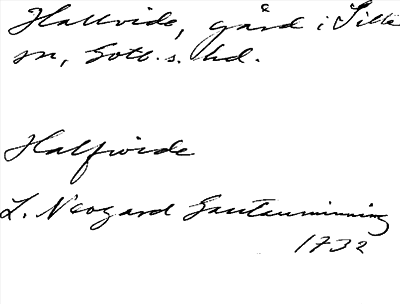 Hallvide, gård i Silte
sn, Gotl. s. hd.
Halfvide
L. Neogard Gautauminning
1732